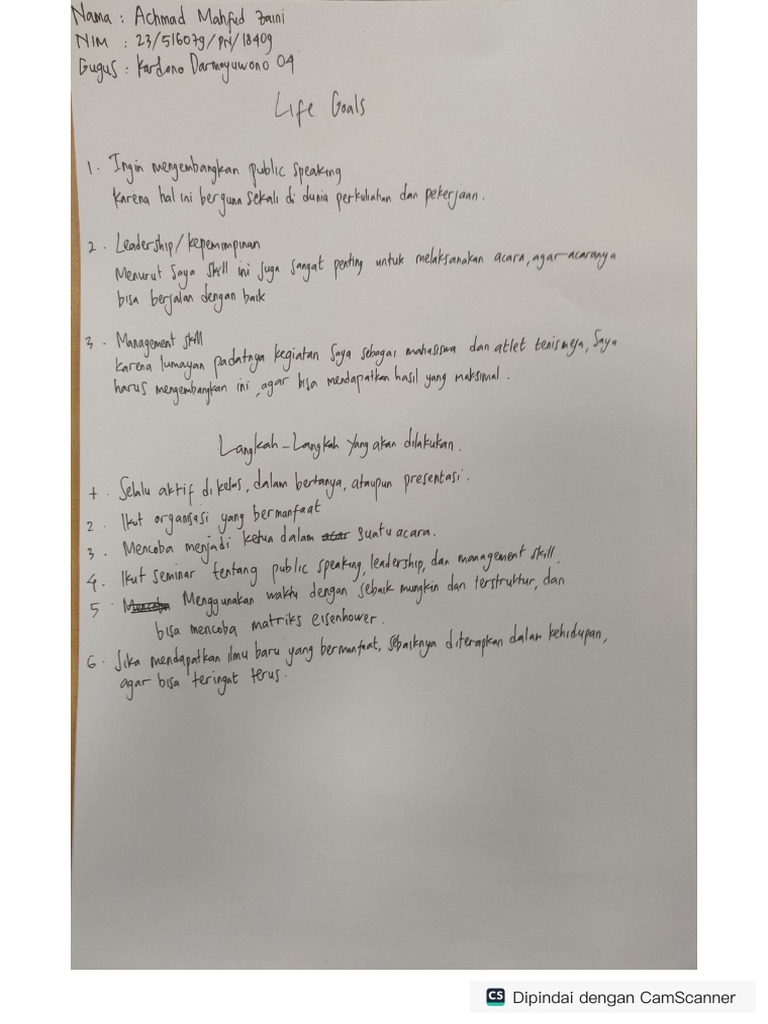 Nama : Achmad Mahfud Zaini
NIM : 23/516079/PN/18409
Gugus : Kardono Darmoyuwono 04
Life Goals
1. Ingin mengembangkan public speaking
karena hal ini berguna sekali di dunia perkuliahan dan pekerjaan.
2. Leadership/kepemimpinan
Menurut saya skill ini juga sangat penting untuk melaksanakan acara, agar acaranya
bisa berjalan dengan baik
3. Management skill
karena lumayan padatnya kegiatan saya sebagai mahasiswa dan atlet tenis meja, saya
harus mengembangkan ini, agar bisa mendapatkan hasil yang maksimal.
Langkah-Langkah yang akan dilakukan.
1. Selalu aktif di kelas, dalam bertanya, ataupun presentasi.
2. Ikut organisasi yang bermanfaat
3. Mencoba menjadi ketua dalam acar suatu acara.
4. Ikut seminar tentang public speaking, leadership, dan management skill.
5. Menggunakan waktu dengan sebaik mungkin dan terstruktur, dan
bisa mencoba matriks eisenhower.
6. Jika mendapatkan ilmu baru yang bermanfaat, sebaiknya diterapkan dalam kehidupan,
agar bisa teringat terus.
CS Dipindai dengan CamScanner